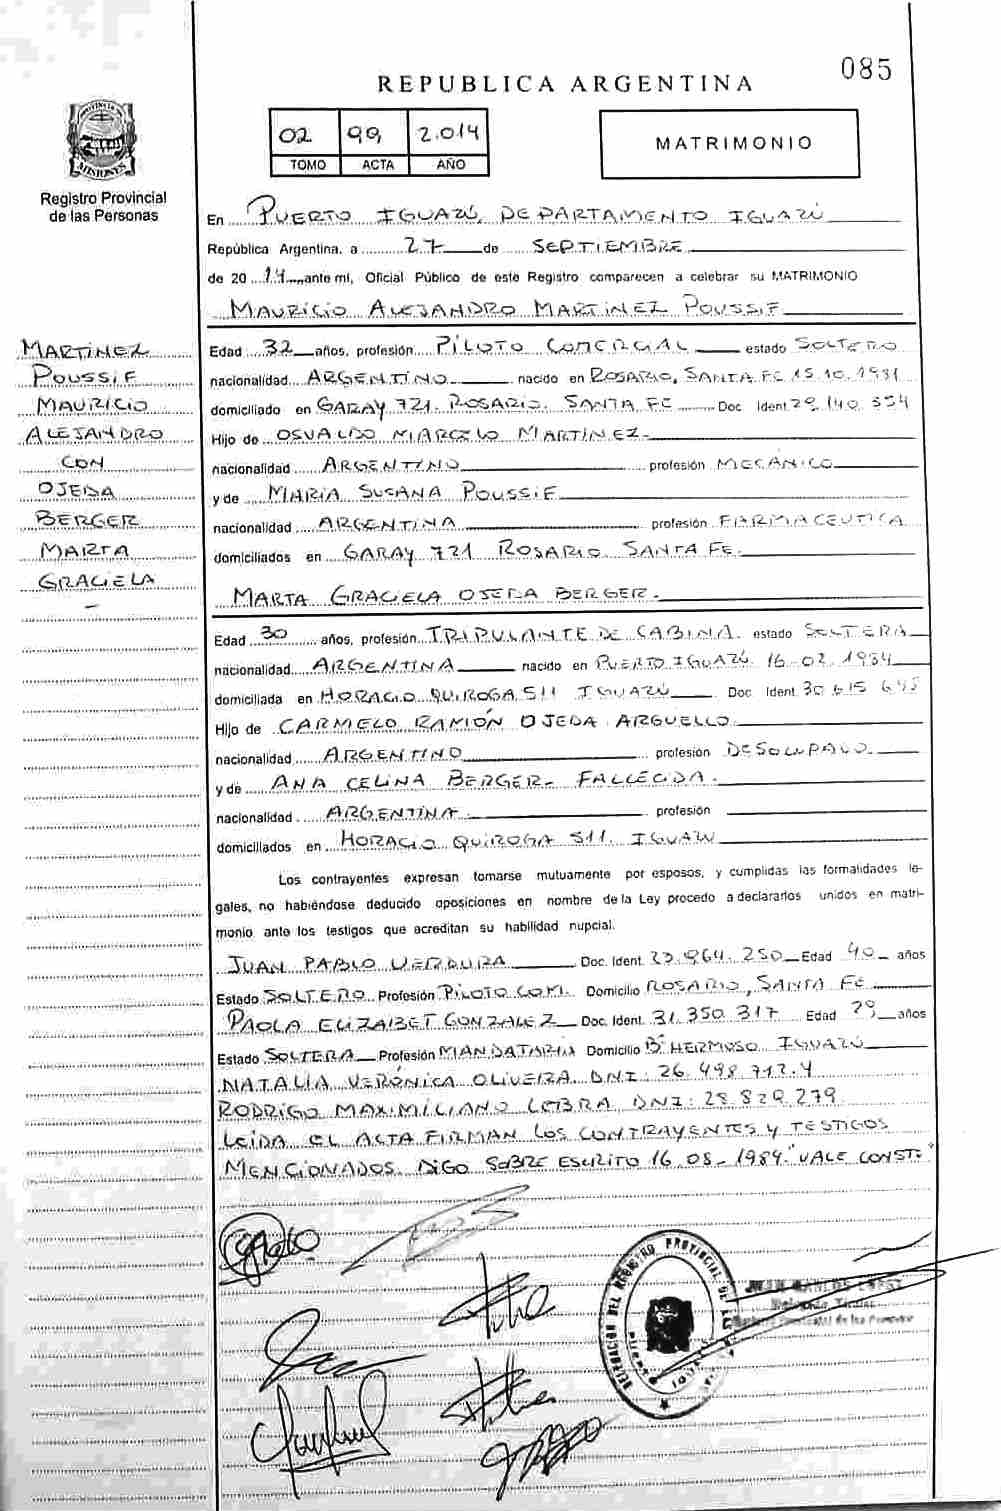 085
REPUBLICA ARGENTINA
02 99 2.014
TOMO ACTA AÑO
MATRIMONIO
PROVINCIA DE
MISIONES
Registro Provincial
de las Personas
En PUERTO IGUAZÚ, DEPARTAMENTO IGUAZÚ
República Argentina, a 27 de SEPTIEMBRE
de 20 14 ante mí, Oficial Público de este Registro comparecen a celebrar su MATRIMONIO
MAURICIO ALEJANDRO MARTINEZ POUSSIF
MARTINEZ
POUSSIF
MAURICIO
ALEJANDRO
CON
OJEDA
BERGER
MARTA
GRACIELA
Edad 32 años, profesión PILOTO COMERCIAL estado SOLTERO
nacionalidad ARGENTINO nacido en ROSARIO, SANTA FE 15.10.1981
domiciliado en GARAY 721. ROSARIO. SANTA FE Doc Ident 29.140.354
Hijo de OSVALDO MARCELO MARTINEZ
nacionalidad ARGENTINO profesión MECÁNICO
y de MARIA SUSANA POUSSIF
nacionalidad ARGENTINA profesión FARMACEUTICA
domiciliados en GARAY 721 ROSARIO SANTA FE.
MARTA GRACIELA OJEDA BERGER.
Edad 30 años, profesión TRIPULANTE DE CABINA. estado SOLTERA
nacionalidad ARGENTINA nacido en PUERTO IGUAZÚ. 16-02.1984
domiciliada en HORACIO QUIROGA 511 IGUAZÚ Doc Ident 30 615 645
Hijo de CARMELO RAMÓN OJEDA ARGUELLO
nacionalidad ARGENTINO profesión DESOCUPADO.
y de ANA CELINA BERGER- FALLECIDA.
nacionalidad ARGENTINA. profesión
domiciliados en HORACIO QUIROGA 511. IGUAZU
Los contrayentes expresan tomarse mutuamente por esposos, y cumplidas las formalidades le-
gales, no habiéndose deducido oposiciones en nombre de la Ley procedo a declararlos unidos en matri-
monio ante los testigos que acreditan su habilidad nupcial.
JUAN PABLO VERDURA Doc. Ident. 23.964.250 Edad 40 años
Estado SOLTERO Profesión PILOTO COM. Domicilio ROSARIO, SANTA FE
PAOLA ELIZABET GONZALEZ Doc. Ident. 31.350.317 Edad 29 años
Estado SOLTERA Profesión MANDATARIA Domicilio Bº HERMOSO IGUAZÚ
NATALIA VERÓNICA OLIVEIRA DNI: 26.498.712.Y
RODRIGO MAXIMILIANO LEBRA DNI: 28.829.279
LEIDA EL ACTA FIRMAN LOS CONTRAYENTES Y TESTIGOS
MENCIONADOS. DIGO SOBRE ESCRITO 16.08-1984."VALE CONST:"
DELEGACION DEL REGISTRO PROVINCIAL DE LAS